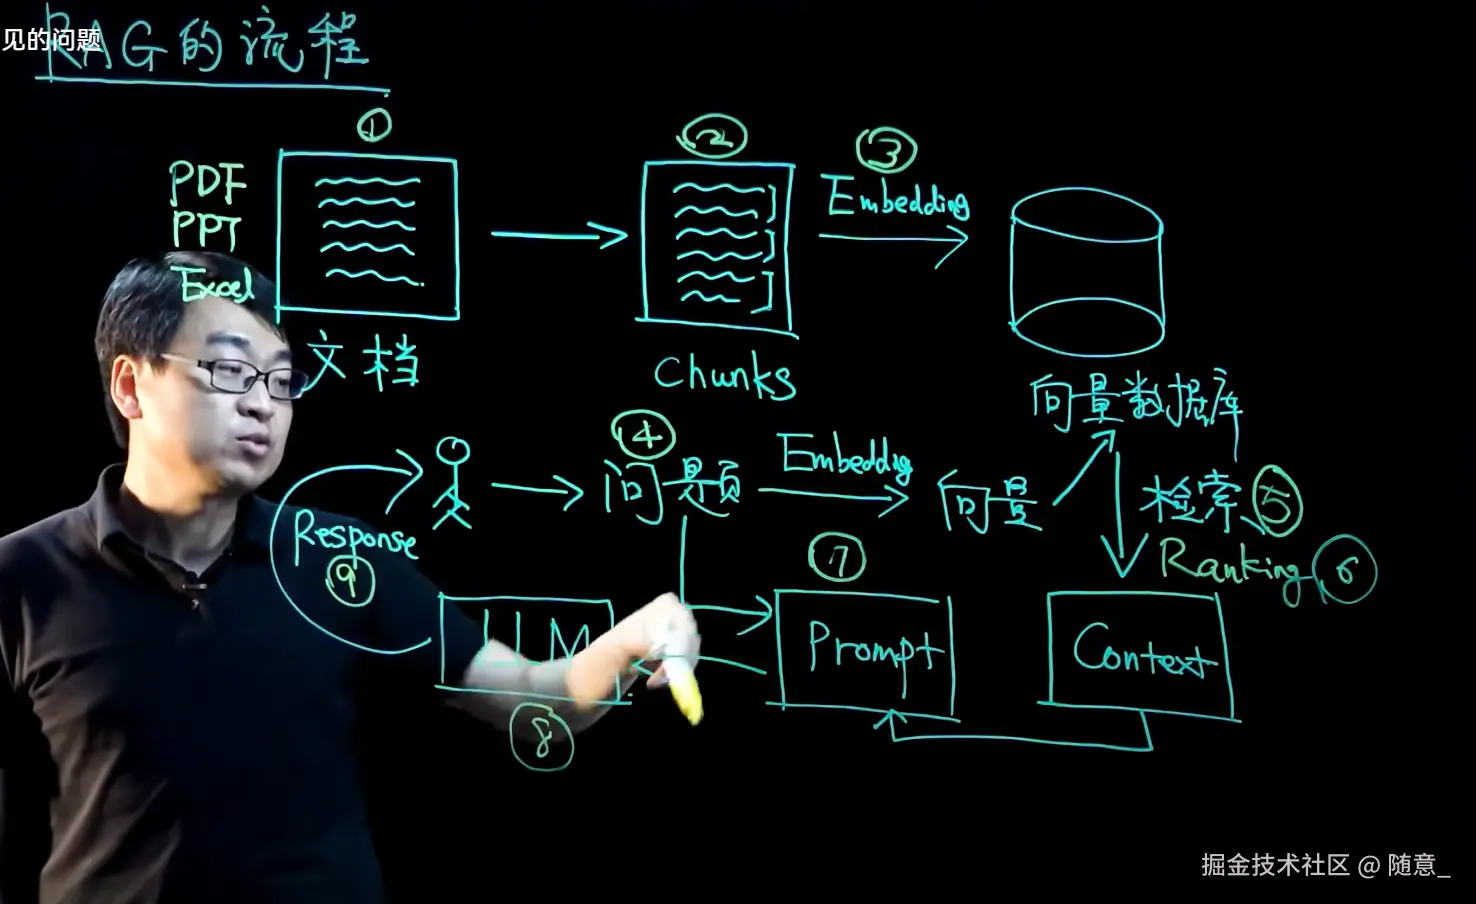 见的问题
RAG的流程
①
②
③
PDF
PPT
Excel
Embedding
文档
Chunks
向量数据库
④
问题
Embedding
向量
检索、⑤
Ranking ⑥
Response
⑨
⑦
LLM
Prompt
Context
⑧
掘金技术社区 @ 随意_